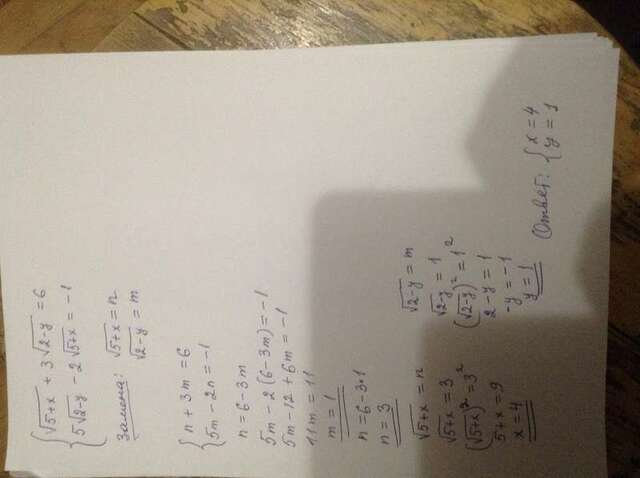 {√5+x + 3√2-y = 6
{5√2-y - 2√5+x = -1
Замена: √5+x = n
√2-y = m
{n + 3m = 6
{5m - 2n = -1
n = 6-3m
5m - 2(6-3m) = -1
5m - 12 + 6m = -1
11m = 11
m = 1
n = 6-3·1
n = 3
√5+x = n
√5+x = 3
(√5+x)² = 3²
5+x = 9
x = 4
√2-y = m
√2-y = 1
(√2-y)² = 1²
2-y = 1
-y = -1
y = 1
Ответ: {x = 4
{y = 1